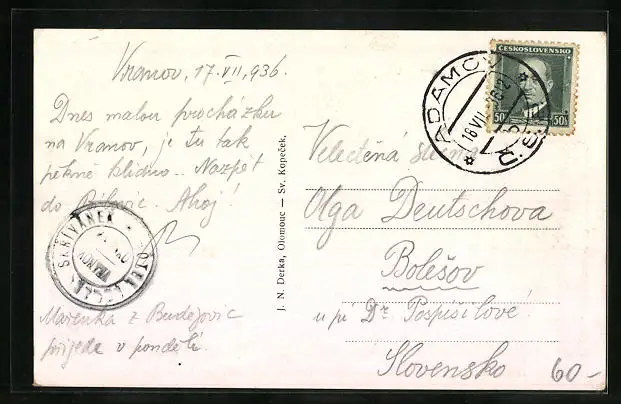 Vranov, 17.VII.936.
Dnes malou procházku
na Vranov, je tu tak
pěkně klidno. Nazpět
do Bílovic. Ahoj!
SKŘIVÁNEK
VRANOV
Mařenka z Budějovic
přijede v pondělí.
J. N. Derka, Olomouc — Sv. Kopeček.
ČESKOSLOVENSKO
50h 50h
ADAMOV
18.VII.
Velectěná slečna
Olga Deutschova
Bolešov
u pí Dr Pospíšilové
Slovensko
60-